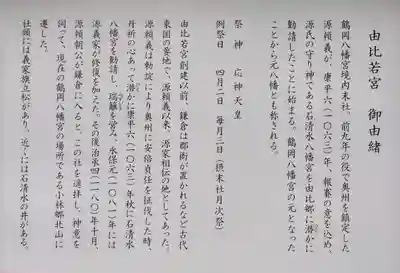 由比若宮　御由緒
鶴岡八幡宮境内末社。前九年の役で奥州を鎮定した
源頼義が、康平六（一〇六三）年、報賽の意を込め、
源氏の守り神である石清水八幡宮を由比郷に潜かに
勧請したことに始まる。鶴岡八幡宮の元となった
ことから元八幡とも称される。
祭神　応神天皇
例祭日　四月二日　毎月三日（摂末社月次祭）
由比若宮創建以前、鎌倉は郡衙が置かれるなど古代
東国の要地で、源頼義以来、源家相伝の地としてあった。
源頼義は勅定により奥州に安倍貞任を征伐した時、
丹祈の心あって潜かに康平六（一〇六三）年秋に石清水
八幡宮を勧請し、瑞籬を営み、永保元（一〇八一）年には
源義家が修復を加えた。その後治承四（一一八〇）年十月、
源頼朝公が鎌倉に入ると、この社を遥拝し、神意を
伺って、現在の鶴岡八幡宮の場所である小林郷北山に
遷した。
社頭には義家旗立松があり、近くには石清水の井がある。